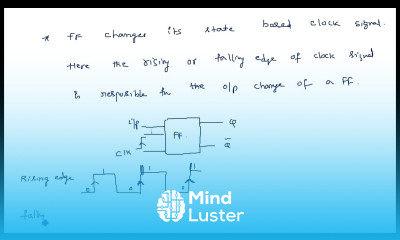 * FF changes its state based clock signal.
Here the rising or falling edge of clock signal
is resposible for the o/p change of a FF.
i/p
FF.
Q
Q̅
Clk
1
Rising edge
1
1
1
0
0
0
Mind
Luster
fallin